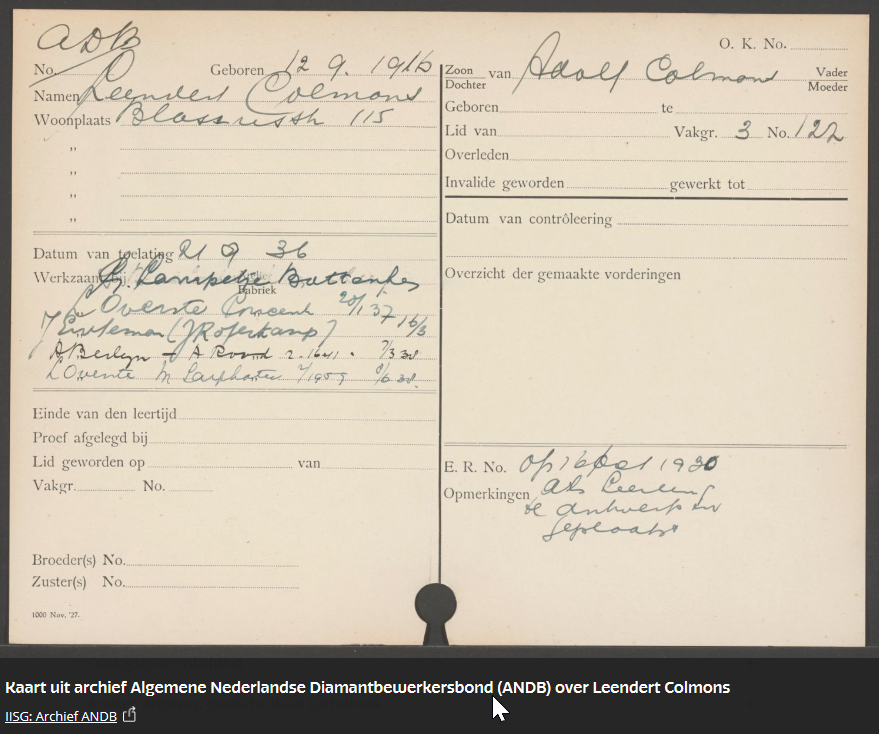 ADB
No.
Geboren 12 9. 1916
Namen Leendert Colmons
Woonplaats 115
"
"
"
"
Datum van toelating 21 9 36
Werkzaam bij
Fabriek
Overste 20/1 37
16/3
A Berlyn - A Rood 2.1641. 7/3 38
L Overste M
Einde van den leertijd
Proef afgelegd bij
Lid geworden op van
Vakgr. No.
Broeder(s) No.
Zuster(s) No.
1000 Nov. '27.
O. K. No.
Zoon van Adolf Colmons Vader
Dochter Moeder
Geboren te
Lid van Vakgr. 3 No. 122
Overleden
Invalide geworden gewerkt tot
Datum van contrôleering
Overzicht der gemaakte vorderingen
E. R. No. op 16 1930
Opmerkingen als Leerling
te Antwerpen
geplaatst
Kaart uit archief Algemene Nederlandse Diamantbewerkersbond (ANDB) over Leendert Colmons
IISG: Archief ANDB